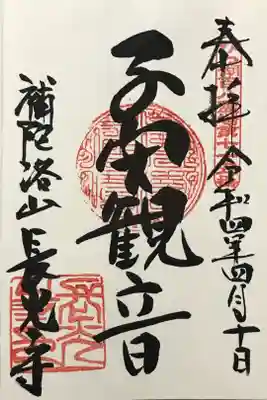 奉拝 令和四年四月十日
子安観音
補陀洛山 長光寺